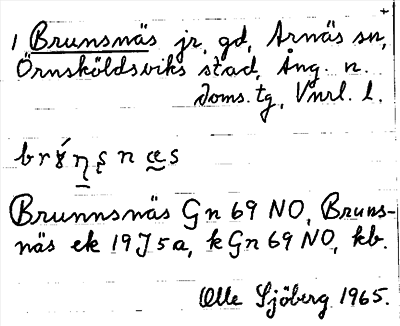 1 Brunsnäs jr. gd, Arnäs sn,
Örnsköldsviks stad, Ång. n.
doms. tg, Vnrl. l.
Brunnsnäs Gn 69 NO, Bruns-
näs ek 19J5a, k Gn 69 NO, kb.
Olle Sjöberg 1965.